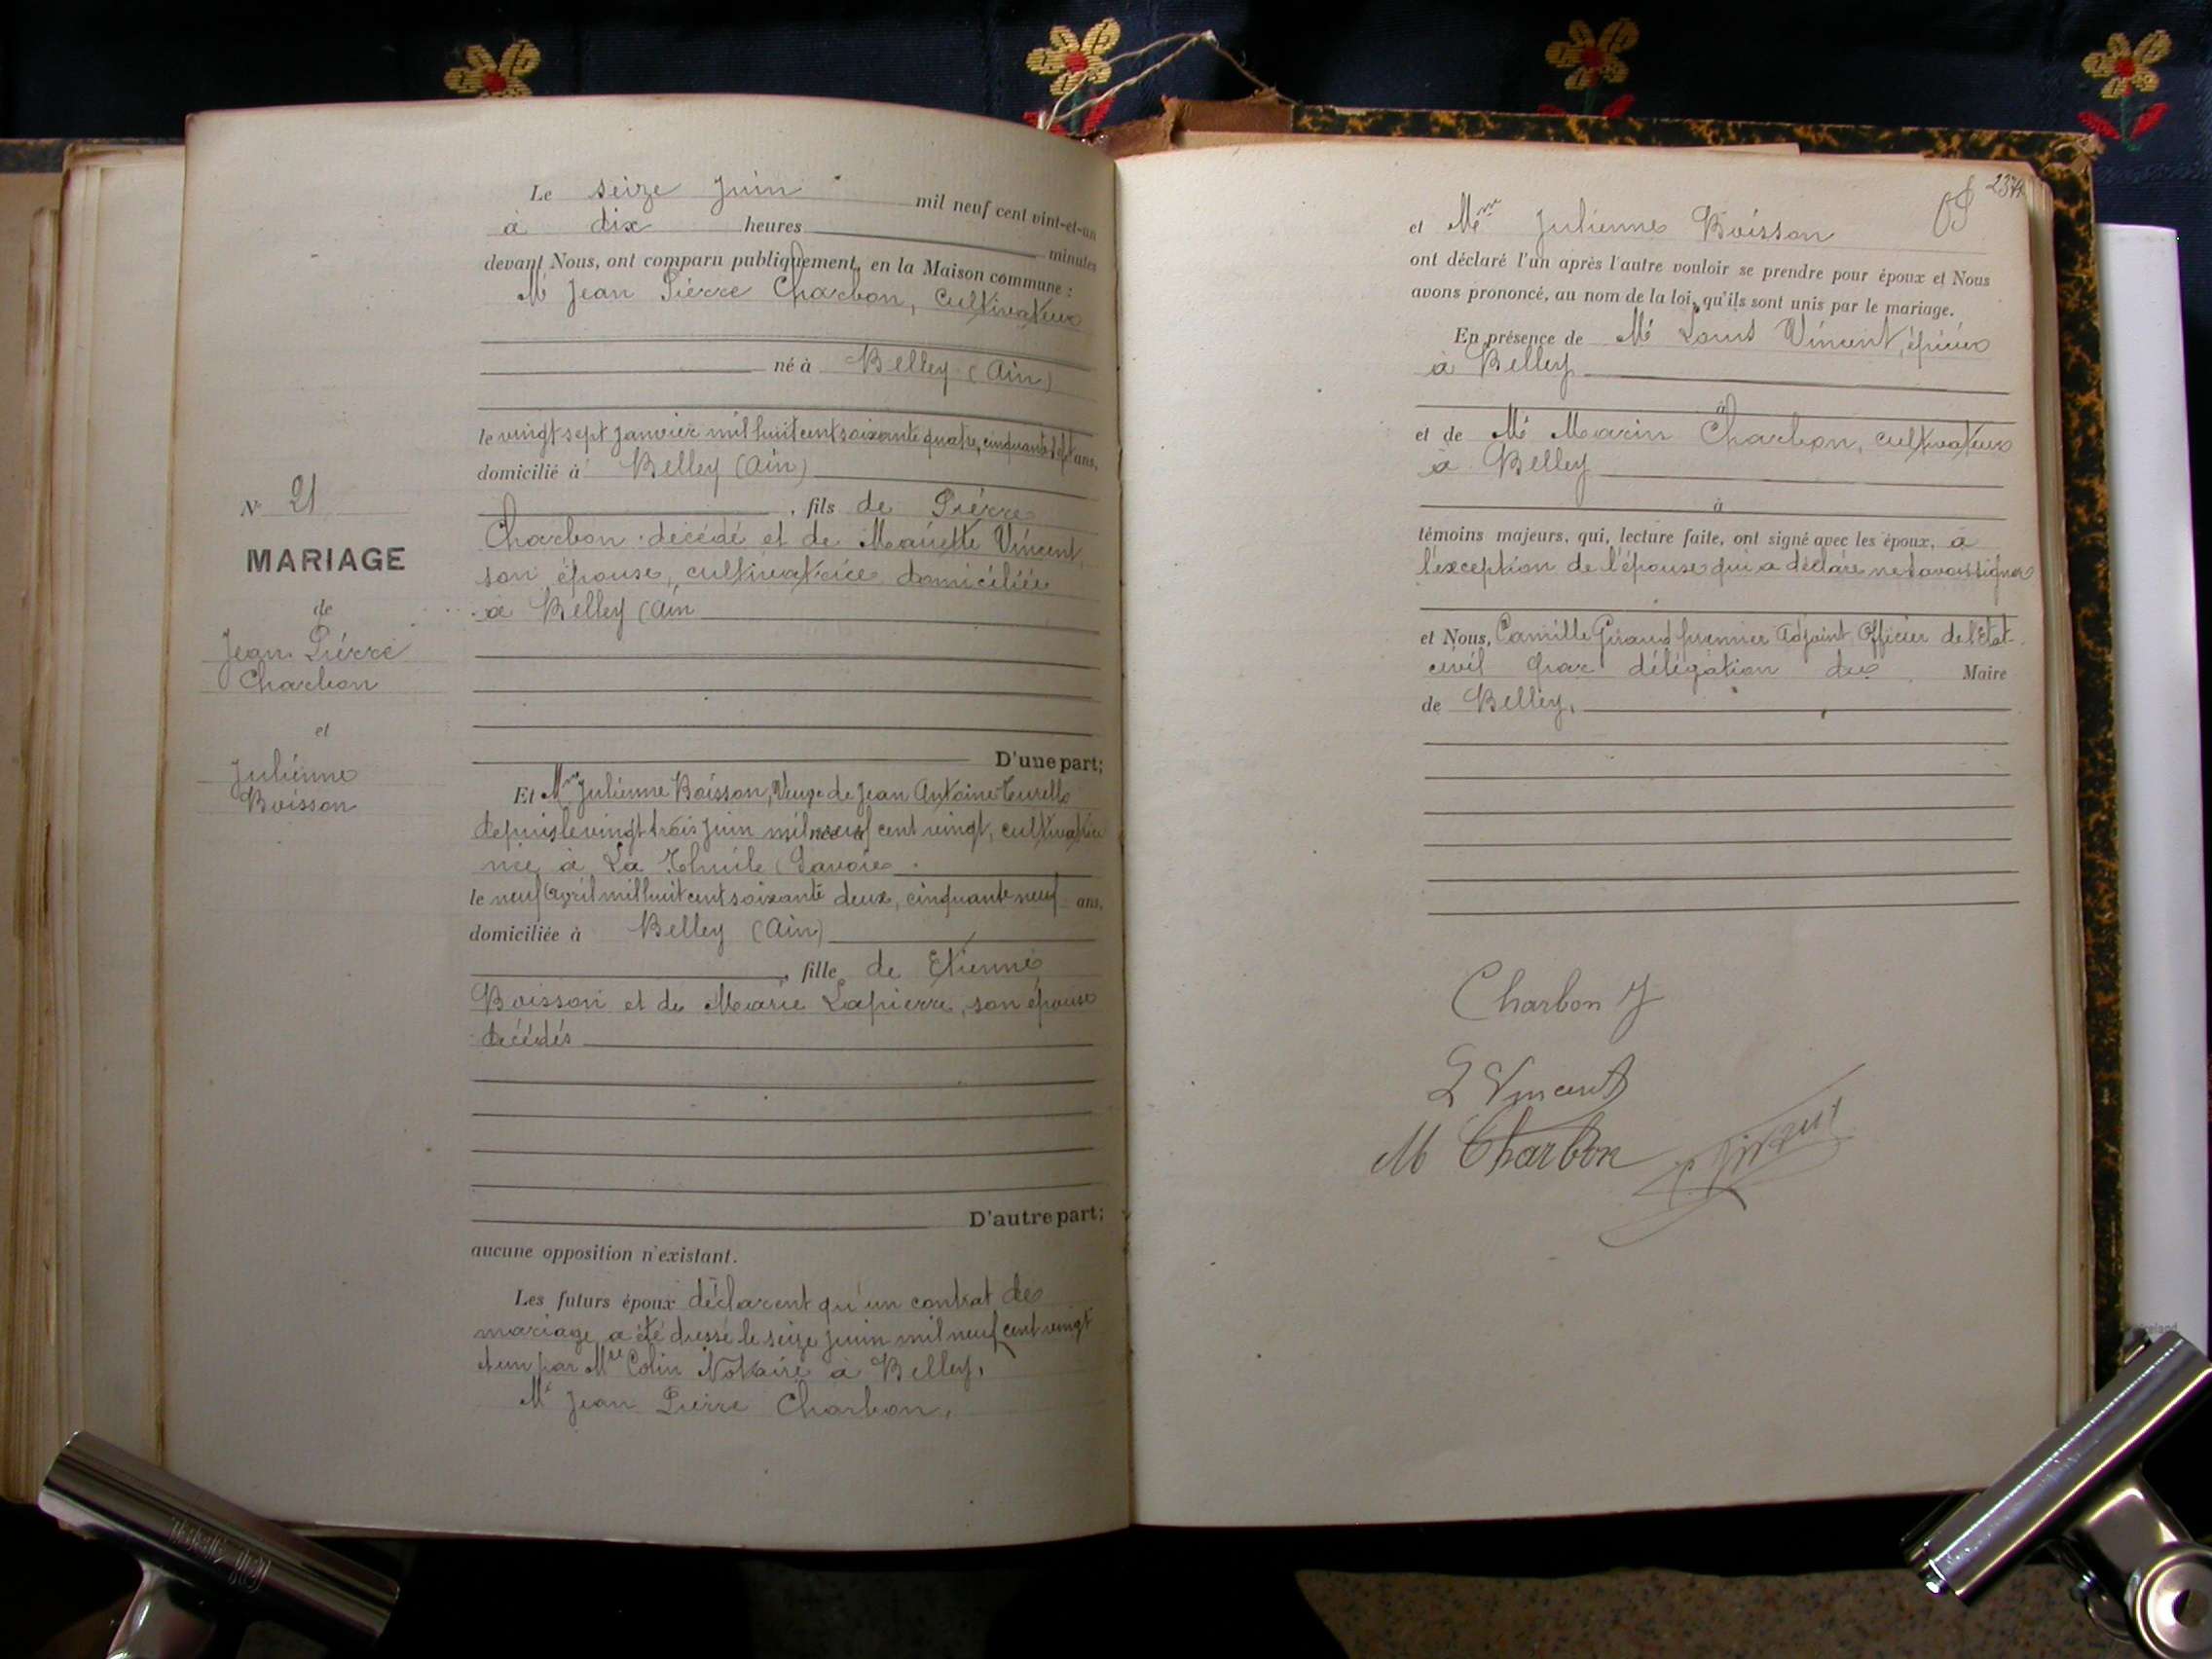 Le seize Juin mil neuf cent vint-et-un
à dix heures minutes
devant Nous, ont comparu publiquement, en la Maison commune :
Mr Jean Pierre Charbon, cultivateur
né à Belley (Ain)
le vingt sept janvier mil huit cent soixante quatre, cinquante sept ans,
domicilié à Belley (Ain)
, fils de Pierre
Charbon décédé et de Mariette Vincent,
son épouse, cultivatrice domiciliée
à Belley (Ain
D'une part;
N° 21
MARIAGE
de
Jean Pierre
Charbon
et
Julienne
Boisson
Et Mme Julienne Boisson, Veuve de Jean Antoine Curello
depuis le vingt trois juin mil neuf cent vingt, cultivatrice
née à La Thuile (Savoie
le neuf avril mil huit cent soixante deux, cinquante neuf ans,
domiciliée à Belley (Ain)
, fille de Etienne
Boisson et de Marie Lapierre, son épouse
décédés
D'autre part;
aucune opposition n'existant.
Les futurs époux déclarent qu'un contrat de
mariage a été dressé le seize juin mil neuf cent vingt
et un par Me Colin Notaire à Belley,
Mr Jean Pierre Charbon,
237
et Mme Julienne Boisson
ont déclaré l'un après l'autre vouloir se prendre pour époux et Nous
avons prononcé, au nom de la loi, qu'ils sont unis par le mariage.
En présence de Mr Louis Vincent, épicier
à Belley
à
et de Mr Marin Charbon, cultivateur
à Belley
à
témoins majeurs, qui, lecture faite, ont signé avec les époux, à
l'exception de l'épouse qui a déclaré ne savoir signer
et Nous, Camille Giraud premier Adjoint, Officier de l'Etat-
civil par délégation du Maire
de Belley.
Charbon J
L Vincent
M Charbon